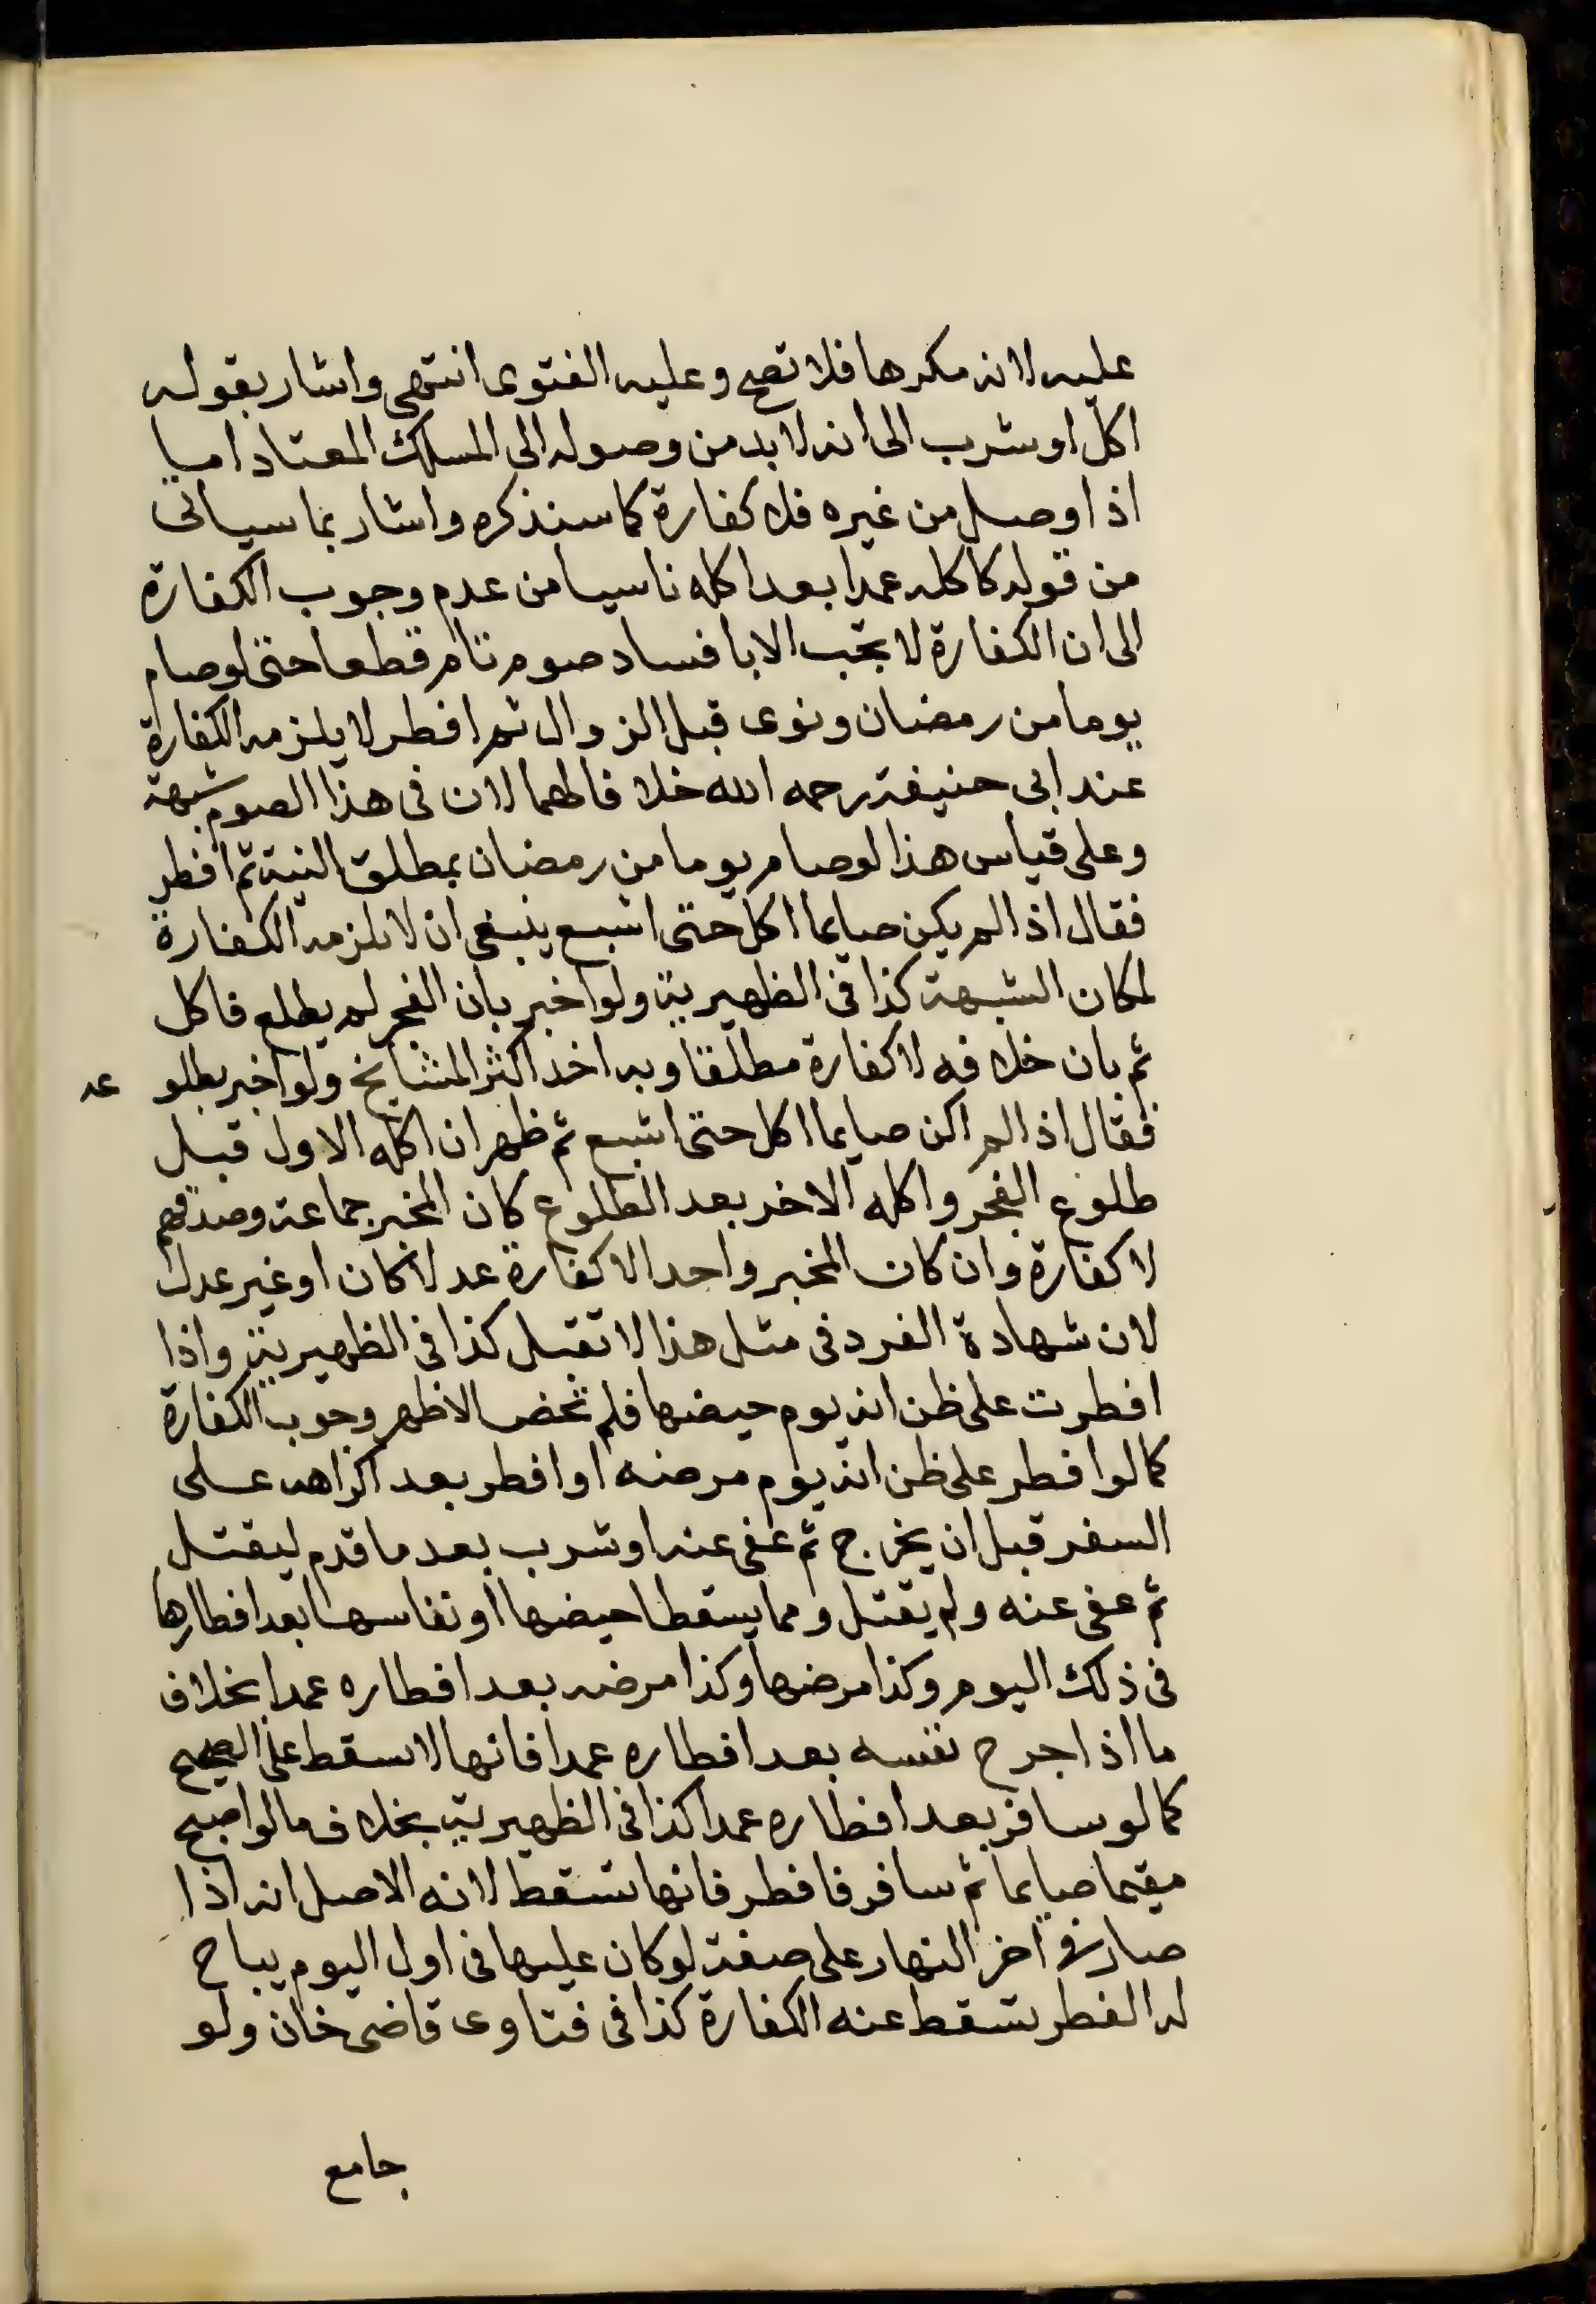 عليه لانه مكرها فلا تصح وعليه الفتوى انتهى واشار بقوله
اكل او شرب الى انه لا بد من وصوله الى المسلك المعتاد اما
اذا وصل من غيره فلا كفارة كما سنذكره واشار بما سياتى
من قوله كاكله عمدا بعد اكله ناسيا من عدم وجوب الكفارة
الى ان الكفارة لا تجب الا بافساد صوم تام قطعا حتى لو صام
يوما من رمضان ونوى قبل الزوال ثم افطر لا يلزمه الكفارة
عند ابى حنيفة رحمه الله خلافا لهما لان فى هذا الصوم شبهة
وعلى قياس هذا لو صام يوما من رمضان بمطلق النية ثم افطر
فقال اذا لم يكن صايما اكل حتى اشبع ينبغى ان لا تلزمه الكفارة
لمكان الشبهة كذا فى الظهيرية ولو اخبر بان الفجر لم يطلع فاكل
ثم بان خلافه لا كفارة مطلقا وبه اخذ اكثر المشايخ ولو اخبر بطلو عه
فقال اذا لم اكن صايما اكل حتى اشبع ثم ظهر ان اكله الاول قبل
طلوع الفجر واكله الاخر بعد الطلوع كان المخبر جماعة وصدقهم
لا كفارة وان كان المخبر واحدا لا كفارة عدلا كان او غير عدل
لان شهادة الفرد فى مثل هذا لا تقبل كذا فى الظهيرية واذا
افطرت على ظن انه يوم حيضها فلم تحض الاظهر وجوب الكفارة
كما لو افطر على ظن انه يوم مرضه او افطر بعد اكراهه على
السفر قبل ان يخرج ثم عفى عنه او شرب بعد ما قدم ليقتل
ثم عفى عنه ولم يقتل ومما يسقطها حيضها او نفاسها بعد افطارها
فى ذلك اليوم وكذا مرضها وكذا مرضه بعد افطاره عمدا بخلاف
ما اذا جرح نفسه بعد افطاره عمدا فانها لا تسقط على الصحيح
كما لو سافر بعد افطاره عمدا كذا فى الظهيرية بخلاف ما لو اصبح
مقيما صايما ثم سافر فافطر فانها تسقط لانه الاصل انه اذا
صار فى اخر النهار على صفة لو كان عليها فى اول اليوم يباح
له الفطر تسقط عنه الكفارة كذا فى فتاوى قاضى خان ولو
جامع